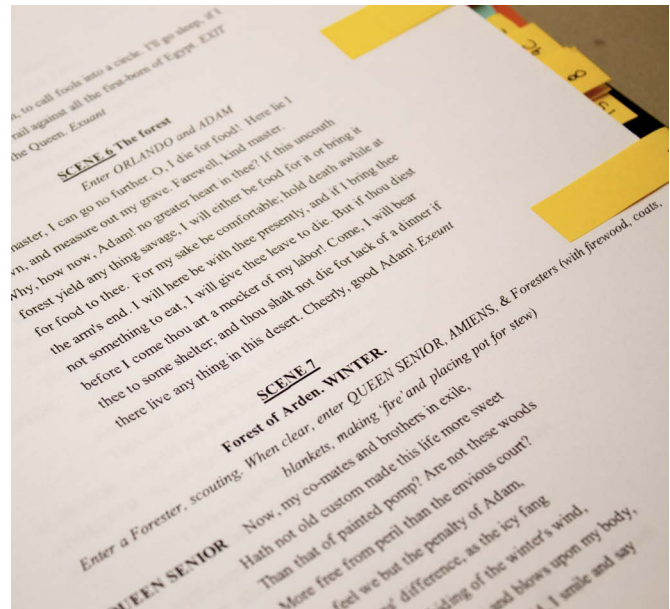 to call fools into a circle. I'll go sleep, if I
rail against all the first-born of Egypt. EXIT
the Queen. Exuant
SCENE 6 The forest
Enter ORLANDO and ADAM
master, I can go no further. O, I die for food! Here lie I
and measure out my grave. Farewell, kind master.
Why, how now, Adam! no greater heart in thee? If this uncouth
forest yield any thing savage, I will either be food for it or bring it
for food to thee. For my sake be comfortable; hold death awhile at
the arm's end. I will here be with thee presently, and if I bring thee
not something to eat, I will give thee leave to die. But if thou diest
before I come thou art a mocker of my labor! Come, I will bear
thee to some shelter; and thou shalt not die for lack of a dinner if
there live any thing in this desert. Cheerly, good Adam! Exeunt
SCENE 7
Forest of Arden. WINTER.
Enter a Forester, scouting. When clear, enter QUEEN SENIOR, AMIENS, & Foresters (with firewood, coats,
blankets, making 'fire' and placing pot for stew)
QUEEN SENIOR Now, my co-mates and brothers in exile,
Hath not old custom made this life more sweet
Than that of painted pomp? Are not these woods
More free from peril than the envious court?
feel we but the penalty of Adam,
difference, as the icy fang
of the winter's wind,
and blows upon my body,
I smile and say
8